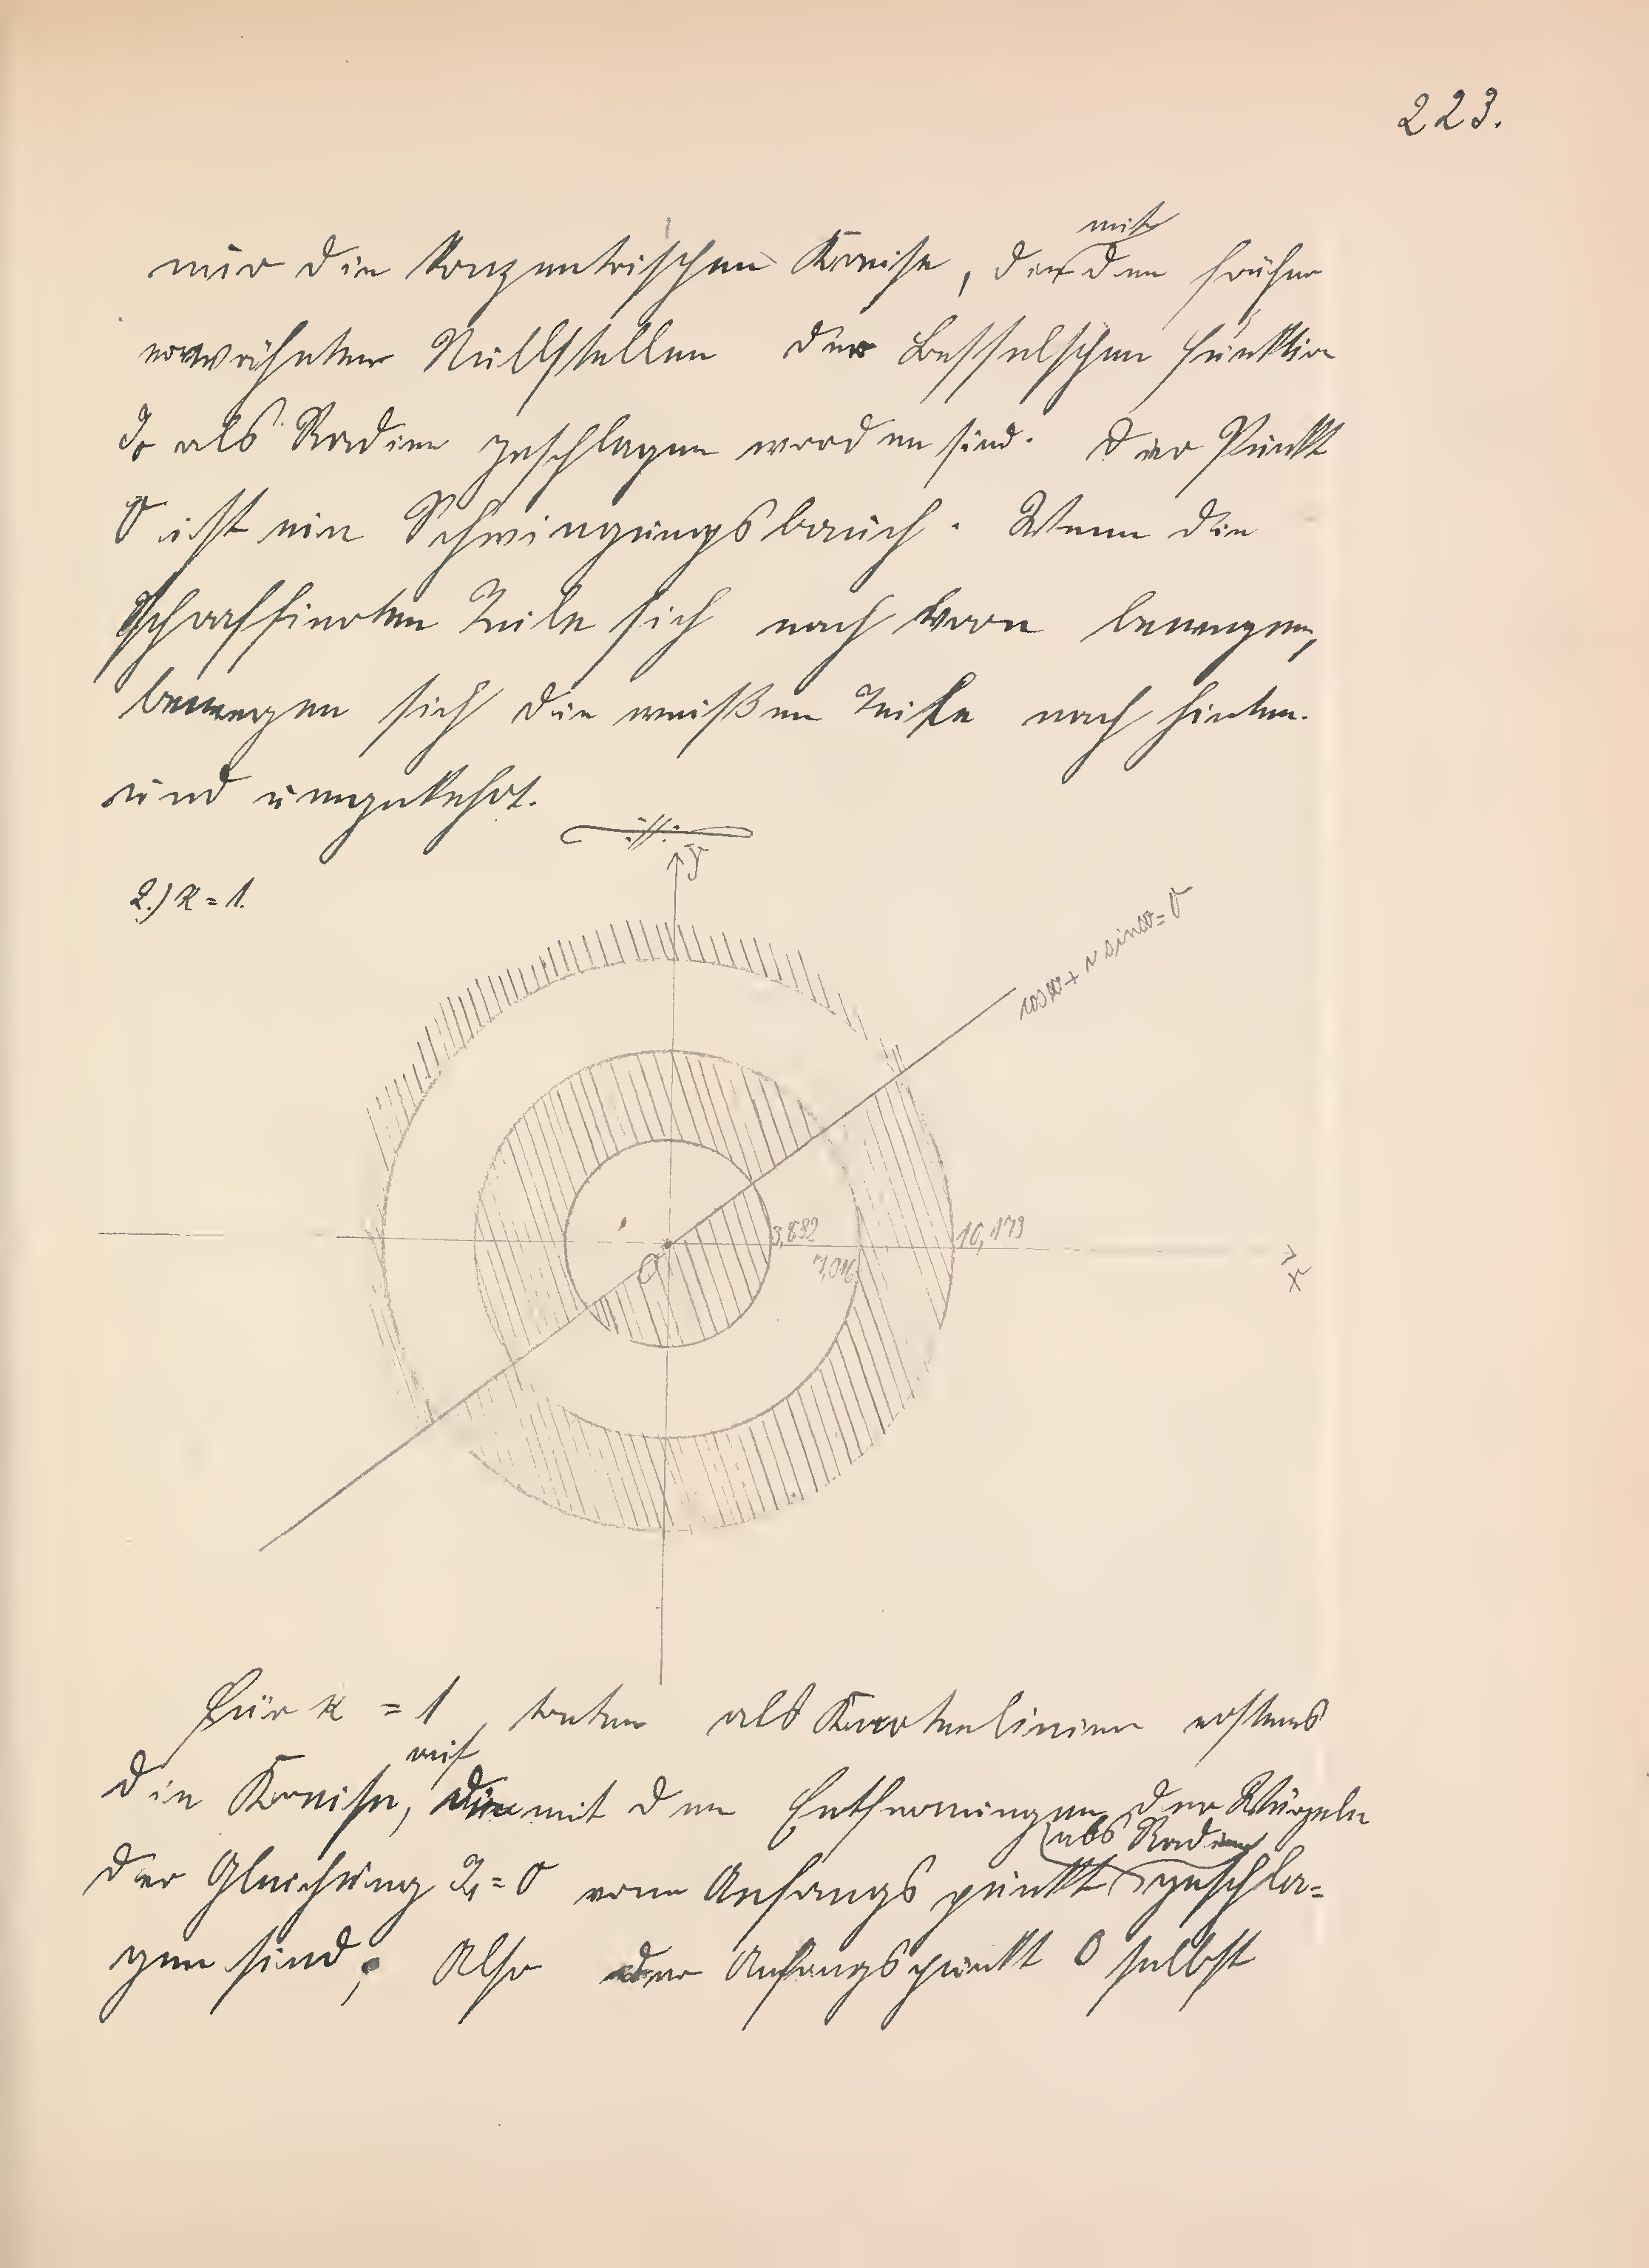 223.
mit
nur die konzentrischen Kreise, die den früher
erwähnten Nullstellen der Besselschen Funktion
J₀ als Radien geschlagen worden sind. Der Punkt
O ist ein Schwingungsbauch. Wenn die
schraffierten Teile sich nach vorn bewegen,
bewegen sich die weißen Teile nach hinten.
und umgekehrt.
y
2.) κ = 1.
cos ω + sin ω = 0
3,832
10,173
7,016
O
x
Für κ = 1, treten als Knotenlinien erstens
auf
die Kreise, die mit den Entfernungen der Wurzeln
als Radien
der Gleichung J₁ = 0 vom Anfangspunkt geschla=
gen sind; Also der Anfangspunkt O selbst